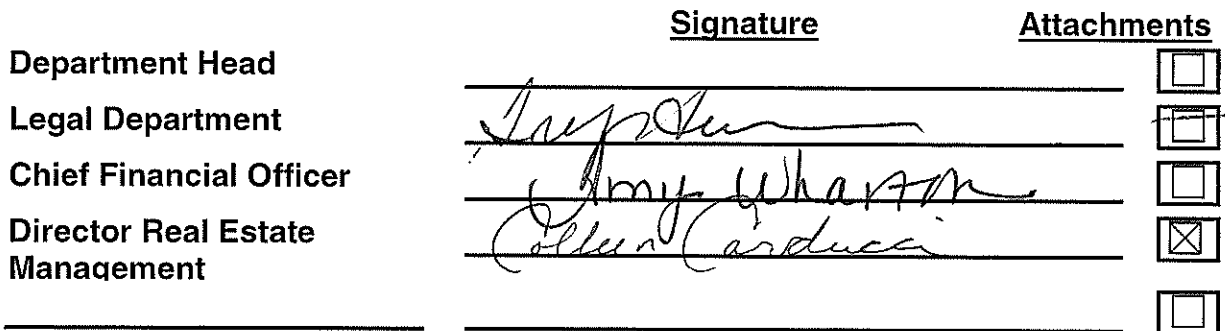 Signature Attachments
Department Head
Legal Department
Chief Financial Officer Amy Wharton
Director Real Estate Colleen Carducci
Management